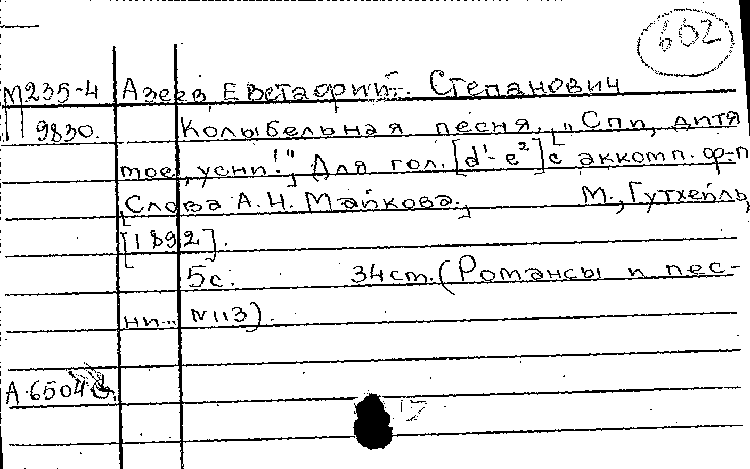 602
М235-4 Азеев, Евстафий Степанович
П 9830. Колыбельная песня. „Спи, дитя
мое, усни!" Для гол. [d¹-e²] с аккомп. ф-п
Слова А.Н. Майкова. М., Гутхейль,
[1892].
5с. 34см. (Романсы и пес-
ни... N113).
А.6504
17